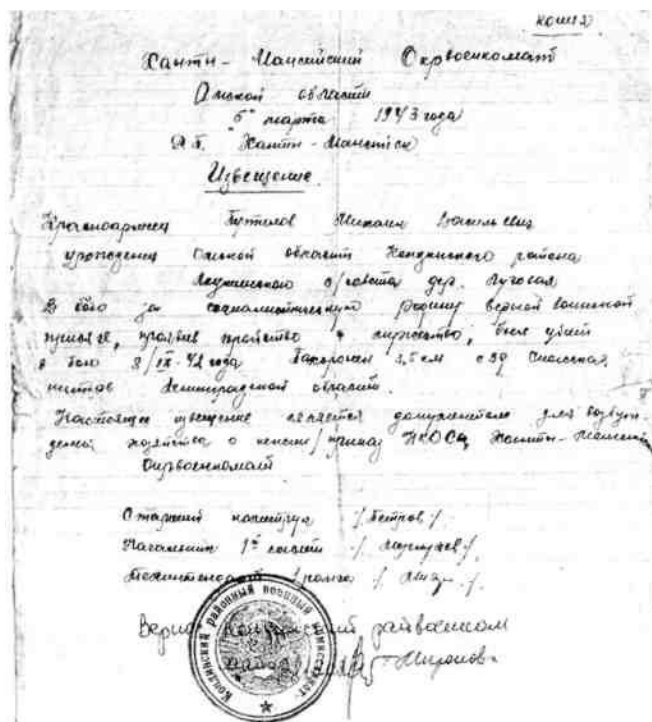 копия
Ханты-Мансийский Окрвоенкомат
Омской области
"6" марта 1943 года
Ханты-Мансийск
Извещение
Красноармеец Михаил Васильевич
уроженец Омской области Кондинского района
с/совета дер. Луговая
В бою за социалистическую родину верный воинской
присяге, проявив геройство и мужество, был убит
в бою 8/IX-42 года Похоронен 1,5 км с
Ленинградской области.
Настоящее извещение является документом для возбуж-
дения ходатайства о пенсии /приказ НКО СССР Ханты-Мансийский
Окрвоенкомат
Старший /Петров/.
Начальник 1й части
Техинтендант 1 ранга
Верно: Кондинский райвоенком
Миронов
Кондинский районный военный комиссариат